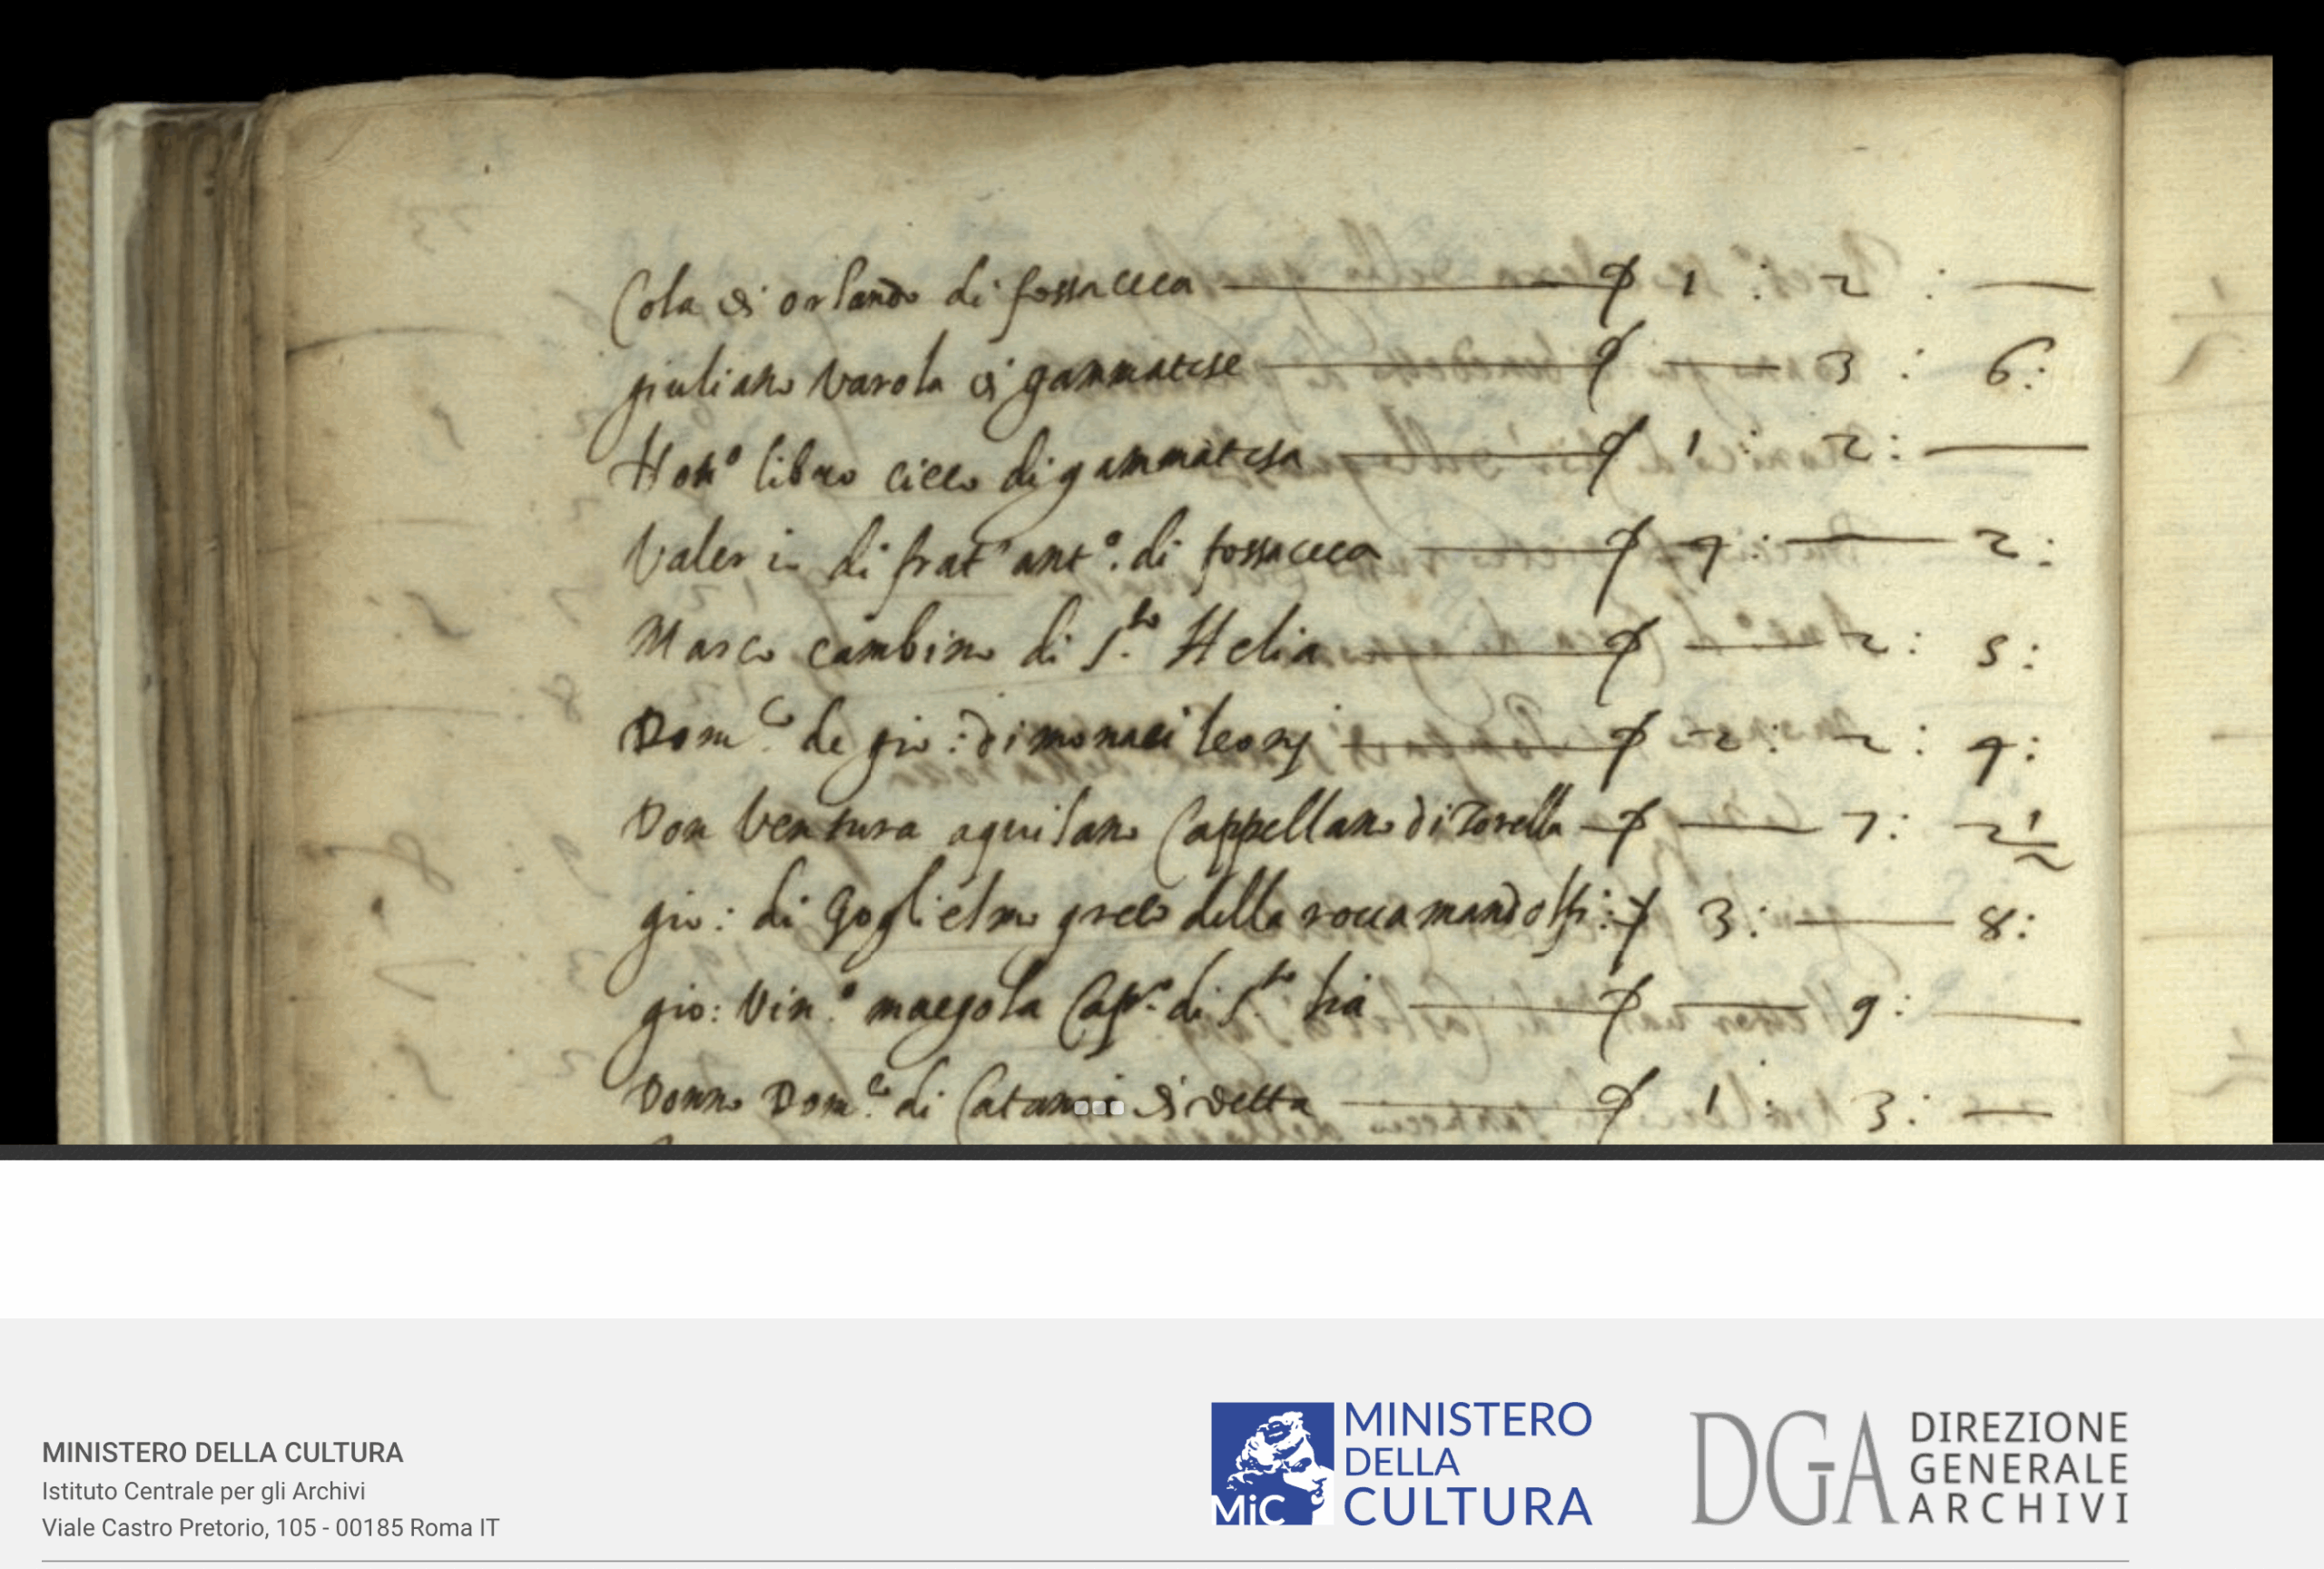 Cola di orlando di fossaceca ₰ 1 : 2 : —
giuliano varola di gammatese ₰ — 3 : 6 :
Hon.o libero cicco di gammatesa ₰ 1 : 2 : —
Valer io di frat' ant.o di fossaceca ₰ 4 : — 2 :
Marco cambino di S.to Helia ₰ — 2 : 5 :
Dom.co de gio: di monaci leonj ₰ 2 : 2 : 4 :
Don Ventura aquilano Cappellano di Torella ₰ — 7 : 2 1/2
gio: di Goglielmo greco della rocca mandolfi: ₰ 3 : — 8 :
gio: Vin.o di S.to lia ₰ — 9 : —
Donno Dom.co di di detta ₰ 1 : 3 : —
MINISTERO DELLA CULTURA
Istituto Centrale per gli Archivi
Viale Castro Pretorio, 105 - 00185 Roma IT
MiC
MINISTERO
DELLA
CULTURA
DGA
DIREZIONE
GENERALE
ARCHIVI